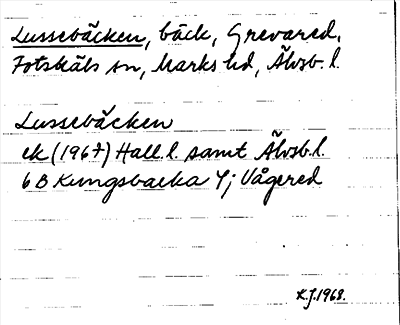 Lussebäcken, bäck, Grevared,
Fotskäls sn, Marks hd, Älvsb. l.
Lussebäcken
ek (1967) Hall. l. samt Älvsb. l.
6 B Kungsbacka 4j Vågered
K.J. 1968.